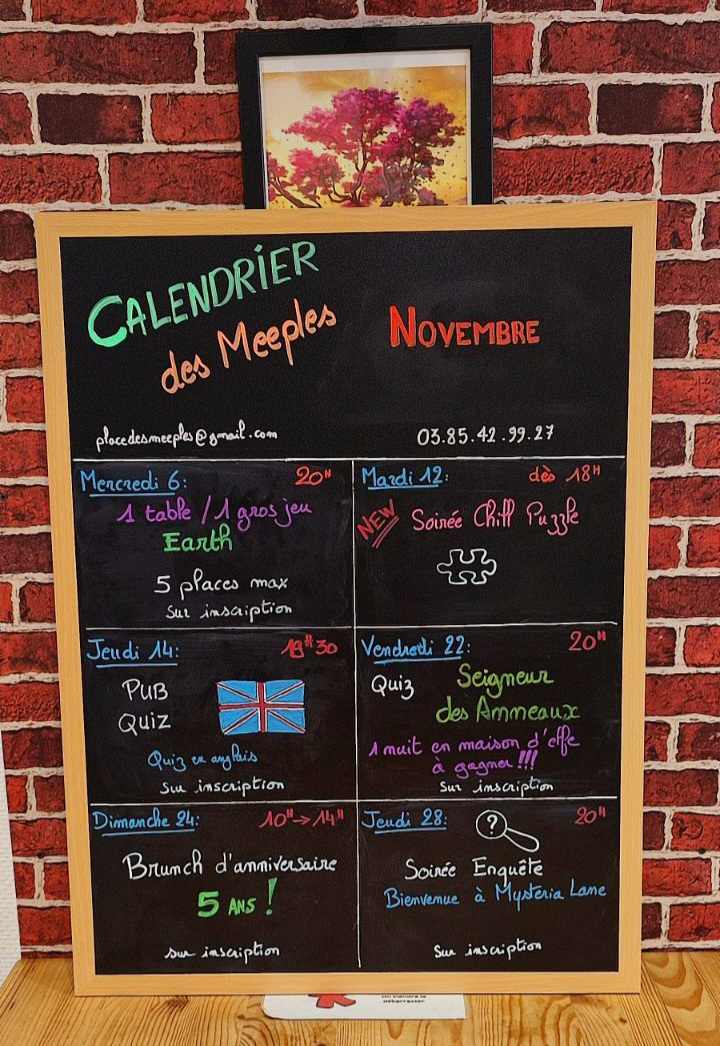 CALENDRIER
des Meeples
NOVEMBRE
placedesmeeples@gmail.com
03.85.42.99.27
Mercredi 6:
20H
1 table / 1 gros jeu
Earth
5 places max
sur inscription
Mardi 12:
dès 18H
NEW
Soirée Chill Puzzle
Jeudi 14:
19H30
PUB
QUIZ
Quiz en anglais
sur inscription
Vendredi 22:
20H
Quiz
Seigneur
des Ammeaux
1 nuit en maison d'elfe
à gagner !!!
sur inscription
Dimanche 24:
10H→14H
Brunch d'anniversaire
5 ANS !
sur inscription
Jeudi 28:
?
20H
Soirée Enquête
Bienvenue à Mysteria Lane
Sur inscription